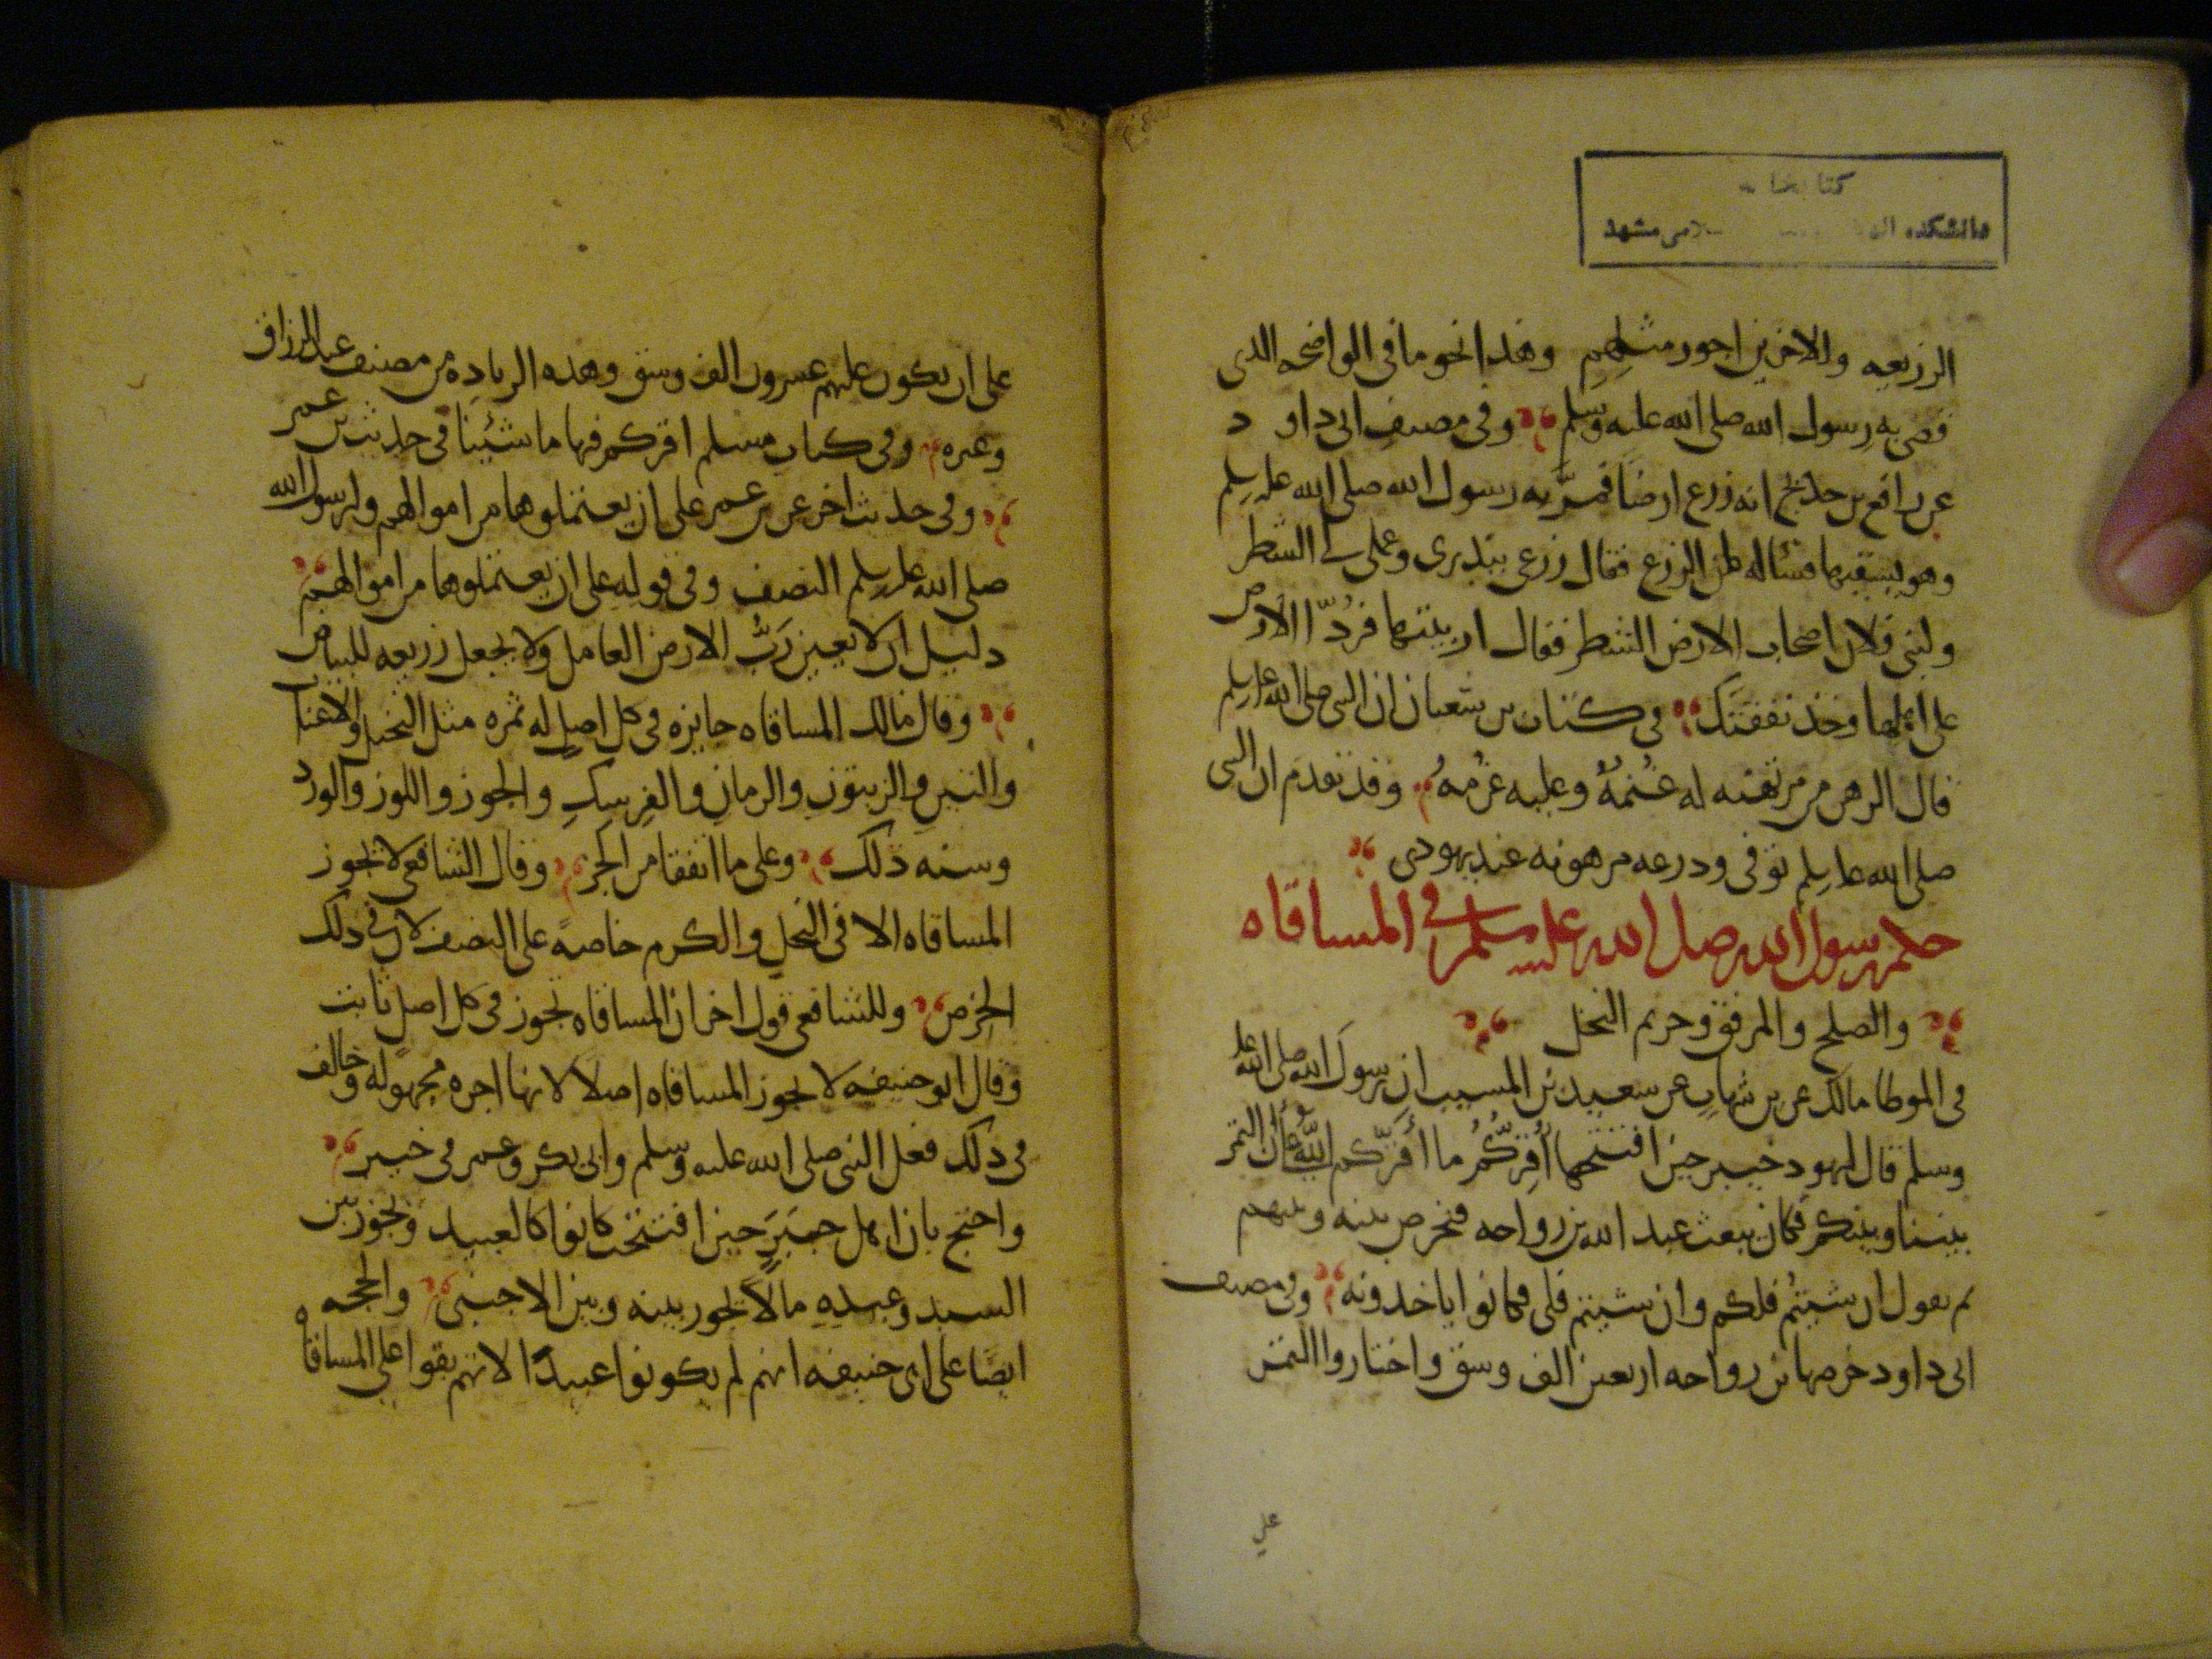 كتابخانه
دانشكده اله سلامی مشهد
الزريعه والاخرين اجور مثلهم وهذا نحو ما فى الواضحه الذى
قضى به رسول الله صلى الله عليه وسلم وفى مصنف ابى داود
عن رافع بن خديج انه زرع ارضا فمر به رسول الله صلى الله عليه وسلم
وهو يسقيها فسأله لمن الزرع فقال زرعى ببذرى وعملى لى الشطر
ولبنى فلان اصحاب الارض الشطر فقال اربيتما فرُدّ الارض
على اهلها وخذ نفقتك فى كتاب بن شعبان ان النبى صلى الله عليه وسلم
قال الرهن من مرتهنه له غُنمُهُ وعليه غُرمُهُ وقد تقدم ان النبى
صلى الله عليه وسلم توفى ودرعه مرهونه عند يهودى
حكم رسول الله صلى الله عليه وسلم فى المساقاه
والصلح والمرفق وحريم النخل
فى الموطا مالك عن بن شهاب عن سعيد بن المسيب ان رسولَ الله صلى الله عليه
وسلم قال ليهود خيبر حين افتتحها أُقِرُّكُم ما أَقَرَّكم اللهُ على أن التمر
بيننا وبينكم فكان يبعث عبد الله بن رواحه فيخرص بينه وبينهم
ثم يقول ان شيتُم فلكم وان شيتم فلى فكانوا ياخذونه وفى مصنف
ابى داود خرصها بن رواحه اربعين الف وسق واختاروا التمر
على
على ان يكون عليهم عشرون الف وسق وهذه الزياده من مصنف عبد الرزاق
وغيره وفى كتاب مسلم اقركم فيها ما شئينا فى حديث بن عمر
وفى حديث اخر عن بن عمر على ان يعتملوها من اموالهم ولرسول الله
صلى الله عليه وسلم النصف وفى قوله على ان يعتملوها من اموالهم
دليل ان لا يعين رَبُّ الارض العامل ولا يجعل زريعه للبياض
وقال مالك المساقاه جايزه فى كل اصل له ثمره مثل النخيل والاعناب
والتين والزيتون والرمان والفِرسِكِ والجوز واللوز والورد
وشبه ذلك وعلى ما اتفقا من الجزء وقال الشافعى لا تجوز
المساقاه الا فى النخل والكرم خاصةً على النصف لان فى ذلك
الخرص وللشافعى قول اخر ان المساقاه تجوز فى كل اصل ثابت
وقال ابو حنيفه لا تجوز المساقاه اصلا لانها اجره مجهوله وخالف
فى ذلك فعل النبى صلى الله عليه وسلم وابى بكر وعمر فى خيبر
واحتج بان اهل خيبَرَ حين افتتحت كانوا كالعبيد وتجوز بين
السيد وعبده مالا تجوز بينه وبين الاجنبى والحجه
ايضًا على ابى حنيفه انهم لم يكونوا عبيدًا لانهم بقوا على المساقاه